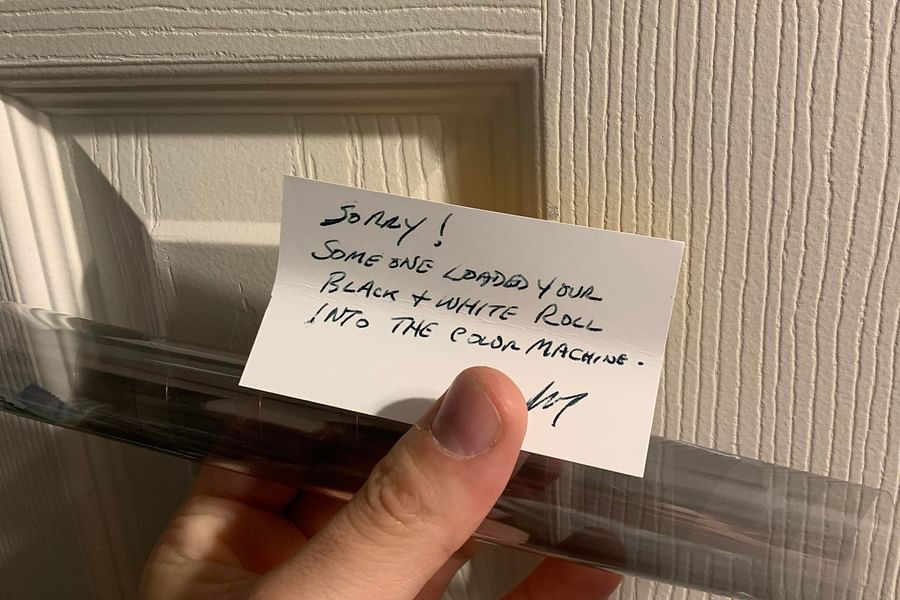 SORRY!
SOMEONE LOADED YOUR
BLACK + WHITE ROLL
INTO THE COLOR MACHINE.